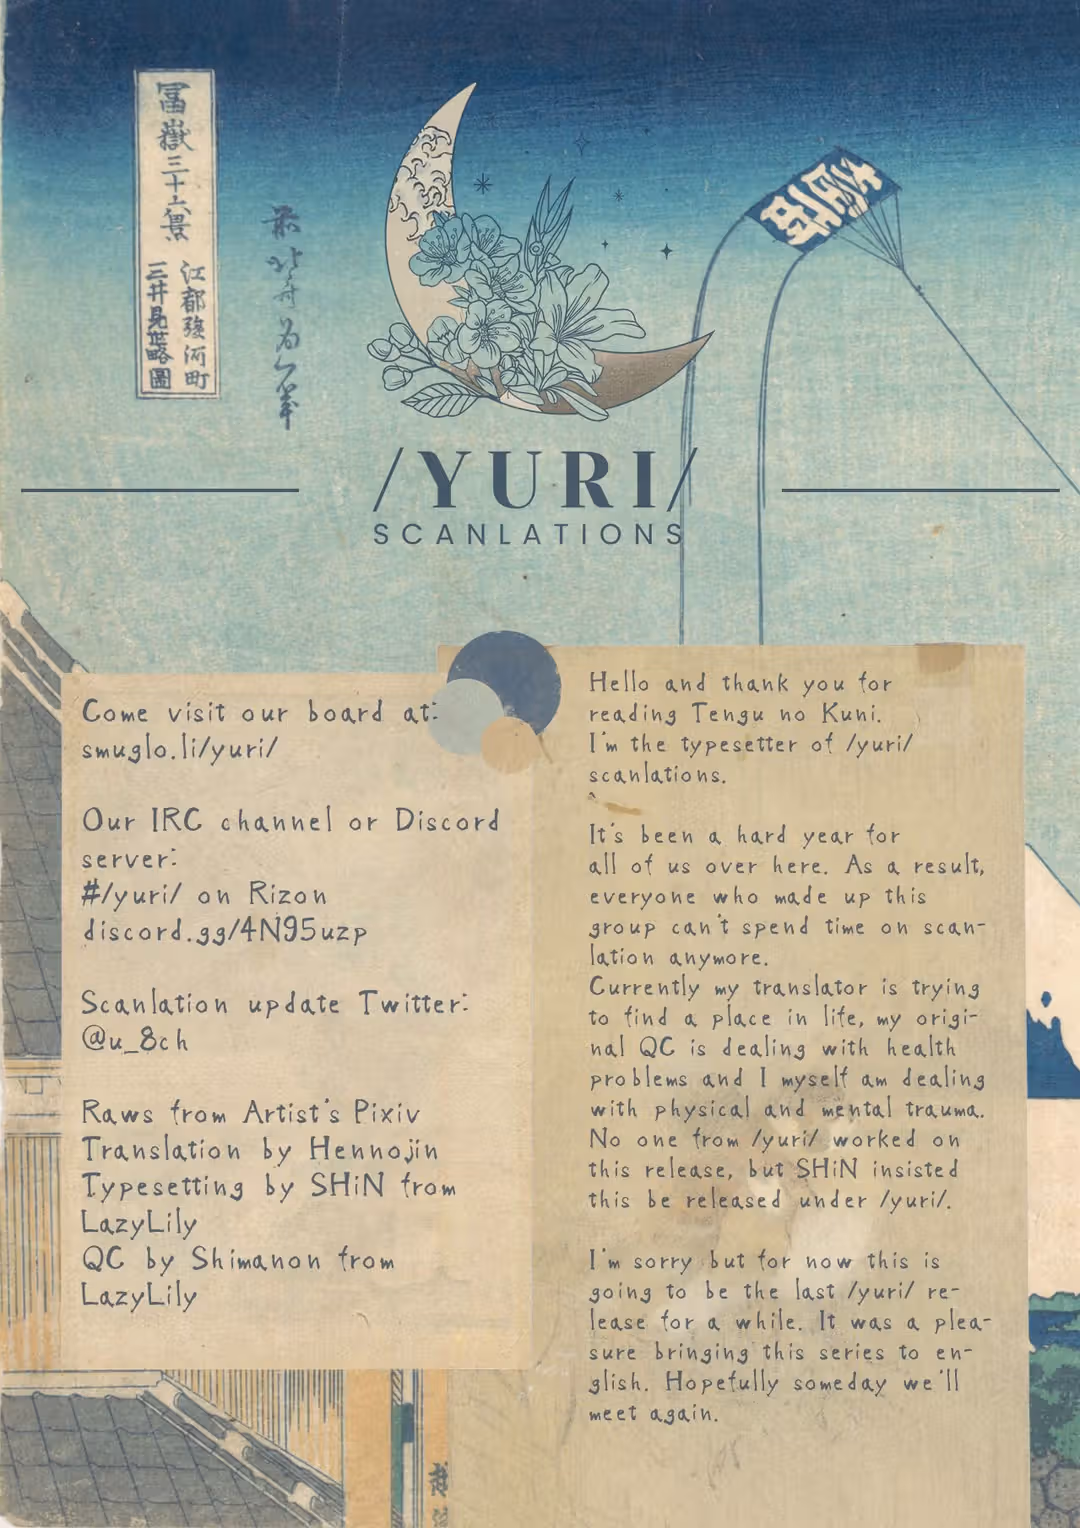 冨嶽三十六景
江都駿河町
三井見世略圖
前北斎為一筆
壽
/YURI/
SCANLATIONS
Come visit our board at:
smuglo.li/yuri/
Our IRC channel or Discord
server:
#/yuri/ on Rizon
discord.gg/4N95uzp
Scanlation update Twitter:
@u_8ch
Raws from Artist's Pixiv
Translation by Hennojin
Typesetting by SHiN from
LazyLily
QC by Shimanon from
LazyLily
Hello and thank you for
reading Tengu no Kuni.
I'm the typesetter of /yuri/
scanlations.
It's been a hard year for
all of us over here. As a result,
everyone who made up this
group can't spend time on scan-
lation anymore.
Currently my translator is trying
to find a place in life, my origi-
nal QC is dealing with health
problems and I myself am dealing
with physical and mental trauma.
No one from /yuri/ worked on
this release, but SHiN insisted
this be released under /yuri/.
I'm sorry but for now this is
going to be the last /yuri/ re-
lease for a while. It was a plea-
sure bringing this series to en-
glish. Hopefully someday we'll
meet again.